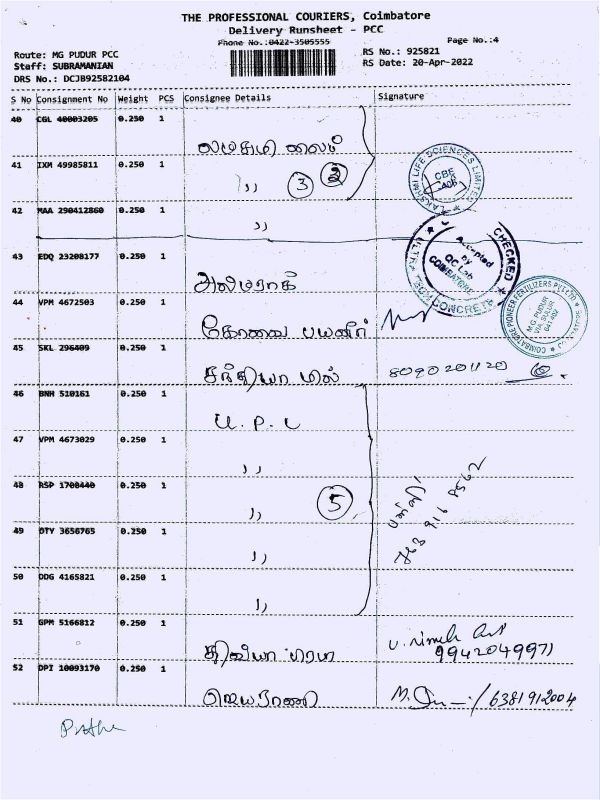 THE PROFESSIONAL COURIERS, Coimbatore
Delivery Runsheet - PCC
Phone No.:0422-3505555
Page No.:4
Route: MG PUDUR PCC
RS No.: 925821
Staff: SUBRAMANIAN
RS Date: 20-Apr-2022
DRS No.: DCJB92582104
S No Consignment No Weight PCS Consignee Details Signature
40 CGL 40003205 0.250 1
லட்சுமி லைப்
41 IXM 49985811 0.250 1
,, 3 2
LAKSHMI LIFE SCIENCES LIMITED
CBE
42 MAA 290412860 0.250 1
,,
CHECKED
Accepted
by
QC Lab
COIMBATORE
CONCRETE
43 EDQ 23208177 0.250 1
COIMBATORE PIONEER FERTILIZERS PVT LTD
M G PUDUR
VIA. SULUR
641 402
44 VPM 4672503 0.250 1
கோவை பயனீர்
45 SKL 296409 0.250 1
சந்தியா மில் 8090201120
46 BNH 510161 0.250 1
U. P. L
47 VPM 4673029 0.250 1
,,
48 RSP 1708440 0.250 1
,, 5
763 916 8562
49 DTY 3656765 0.250 1
,,
50 DDG 4165821 0.250 1
,,
51 GPM 5166812 0.250 1
9942049971
52 DPI 10093170 0.250 1
ஜெயராணி M. 6381912004